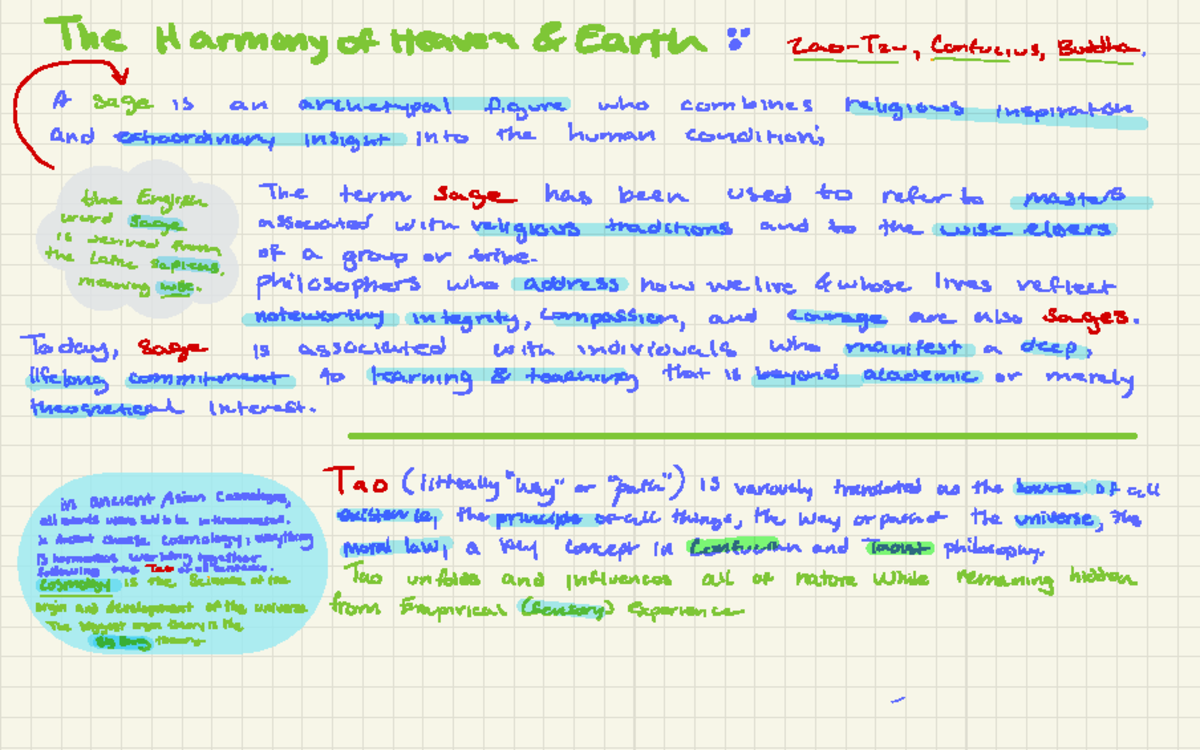 The Harmony of Heaven & Earth
Lao-Tzu, Confucius, Buddha.
A sage is an archetypal figure who combines religious inspiration
and extraordinary insight into the human condition;
the English
word sage
is derived from
the Latin sapiens,
meaning wise.
The term sage has been used to refer to masters
associated with religious traditions and to the wise elders
of a group or tribe.
philosophers who address how we live & whose lives reflect
noteworthy integrity, compassion, and courage are also sages.
Today, sage is associated with individuals who manifest a deep,
lifelong commitment to learning & teaching that is beyond academic or merely
theoretical interest.
in ancient Asian Cosmology,
all events were said to be interconnected.
In ancient Chinese Cosmology, everything
is harmonious working together
following the Tao of all
Cosmology is the Science of the
origin and development of the universe
The biggest origin theory is the
Big Bang theory
Tao (litterally "way" or "path") is variously translated as the source of all
existence, the principle of all things, the way or path of the universe, the
moral law, a key concept in Confucian and Taoist philosophy.
Tao unfolds and influences all of nature while remaining hidden
from Emprirical (Sensory) Experience